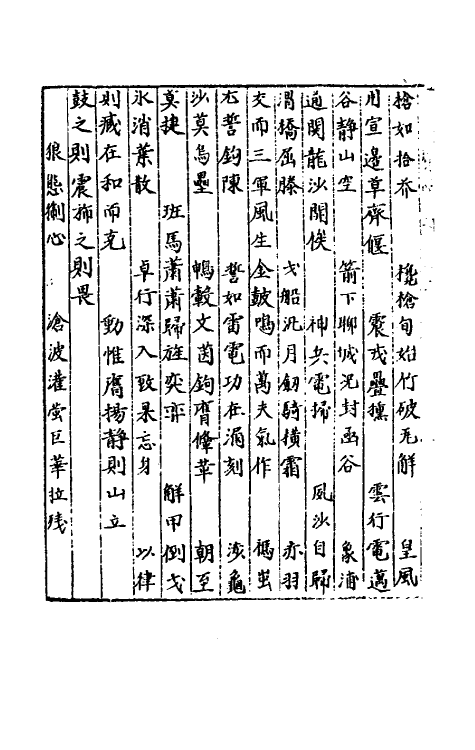 捨如拾芥 攙槍旬始竹破瓦解 皇風
用宣邊草齊偃 震戎疊獯 雲行電邁
谷靜山空 箭下聊城泥封函谷 象浦
通關龍沙開候 神兵電掃 風沙自歸
渭橋屈膝 戈船泝月劔騎橫霜 亦羽
交而三軍風生金鼓鳴而萬夫氣作 禡蚩
尤誓鈎陳 誓如雷電功在漏刻 沙龜
沙莫烏壘 鴨轂文茵鉤膺鞗革 朝至
莫捷 班馬蕭蕭歸旌奕弈 觧甲倒戈
氷消葉散 卓行深入致果忘身 以律
則臧在和而克 動惟鷹揚靜則山立
鼓之則震撫之則畏
狼戀制心 滄波灌螢巨華拉殘